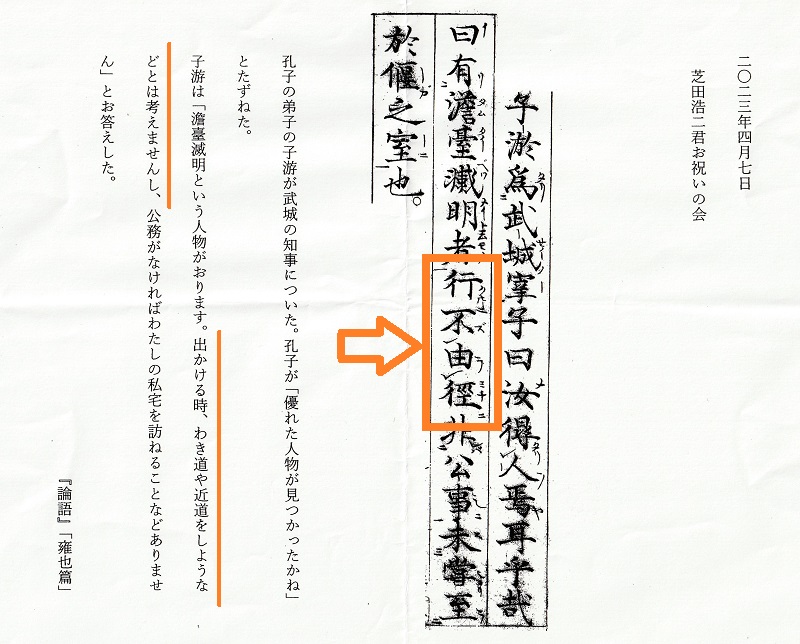 二〇二三年四月七日
芝田浩二君お祝いの会
子游爲武城宰子曰汝得人焉耳乎哉
曰有澹臺滅明者行不由徑非公事未嘗至
於偃之室也。
孔子の弟子の子游が武城の知事についた。孔子が「優れた人物が見つかったかね」
とたずねた。
子游は「澹臺滅明という人物がおります。出かける時、わき道や近道をしような
どとは考えませんし、公務がなければわたしの私宅を訪ねることなどありませ
ん」とお答えした。
『論語』「雍也篇」